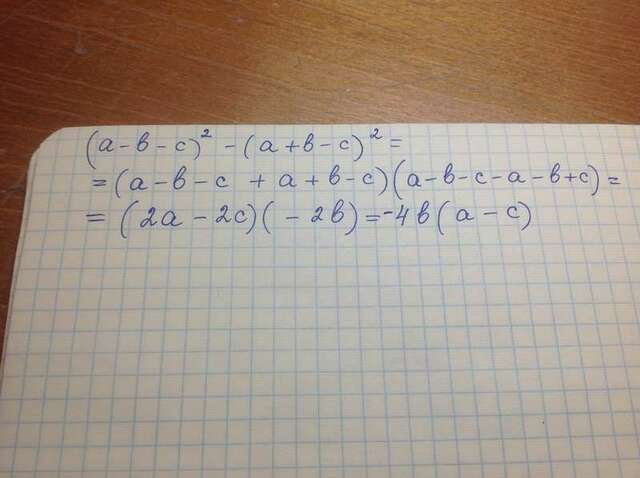 (a-b-c)²-(a+b-c)²=
=(a-b-c+a+b-c)(a-b-c-a-b+c)=
=(2a-2c)(-2b)=-4b(a-c)